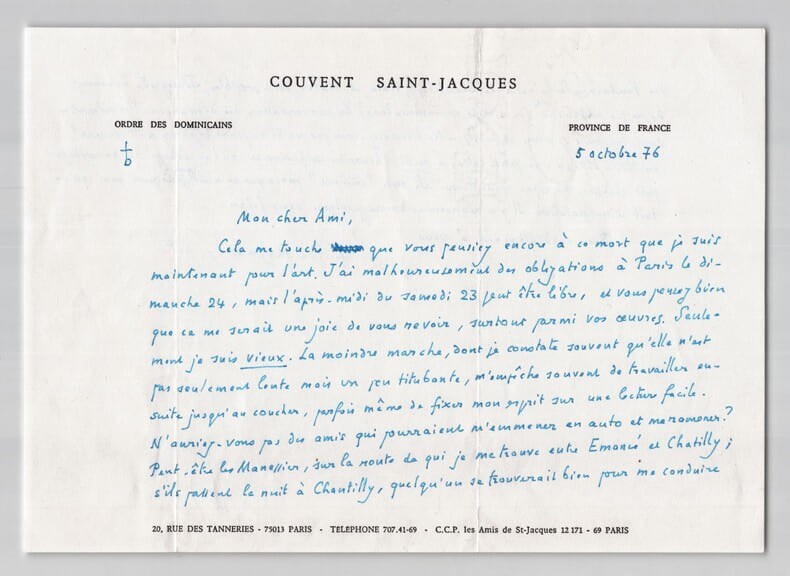 COUVENT SAINT-JACQUES
ORDRE DES DOMINICAINS
PROVINCE DE FRANCE
5 octobre 76
Mon cher Ami,
Cela me touche que vous pensiez encore à ce mort que je suis
maintenant pour l'art. J'ai malheureusement des obligations à Paris le di-
manche 24, mais l'après-midi du samedi 23 peut être libre, et vous pensez bien
que ça me serait une joie de vous revoir, surtout parmi vos œuvres. Seule-
ment je suis vieux. La moindre marche, dont je constate souvent qu'elle n'est
pas seulement lente mais un peu titubante, m'empêche souvent de travailler en-
suite jusqu'au coucher, parfois même de fixer mon esprit sur une lecture facile.
N'auriez-vous pas des amis qui pourraient m'emmener en auto et me ramener?
Peut-être les Manessier, sur la route de qui je me trouve entre Emancé et Chatilly;
s'ils passent la nuit à Chantilly, quelqu'un se trouverait bien pour me conduire
20, RUE DES TANNERIES - 75013 PARIS - TÉLÉPHONE 707.41-69 - C.C.P. les Amis de St-Jacques 12 171 - 69 PARIS